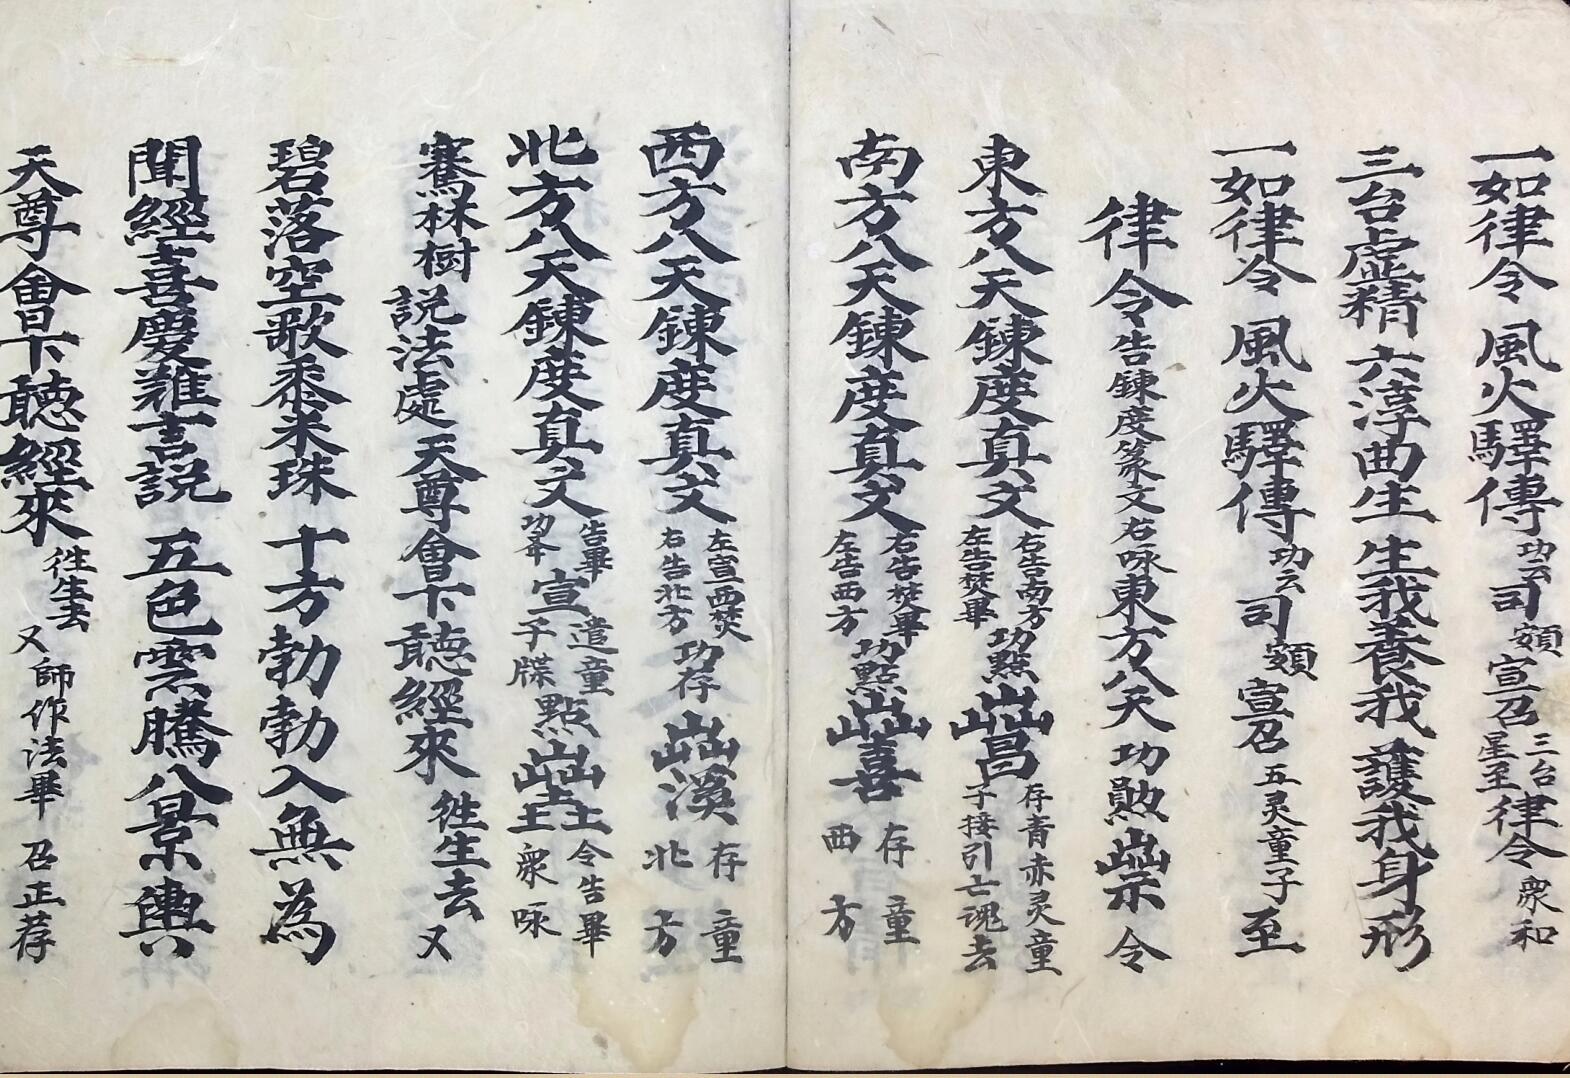 一如律令 風火驛傳 功云 司額 宣召 三台星至 律令 衆和
三台虛精 六淳曲生 生我養我 護我身形
一如律令 風火驛傳 功云 司額 宣召 五灵童子 至
律令 告錬度篆文 右咏 東方八天 功勲 令
東方八天錬度真文 右告南方 左告焚畢 功點 存青赤灵童 子接引亡魂去
南方八天錬度真文 右告焚畢 左告西方 功點 存童 西方
西方八天錬度真文 左宣西焚 右告北方 功存 存童 北方
北方八天錬度真文 告畢 宣 遣童 子牒 點 令告畢 衆咏
騫林樹 説法處 天尊會下聽經來 徃生去 又
碧落空歌黍米珠 十方勃勃入無為
聞經喜慶難言説 五色雲騰八景輿
天尊會下聽經來 徃生去 又師作法畢 召正荐